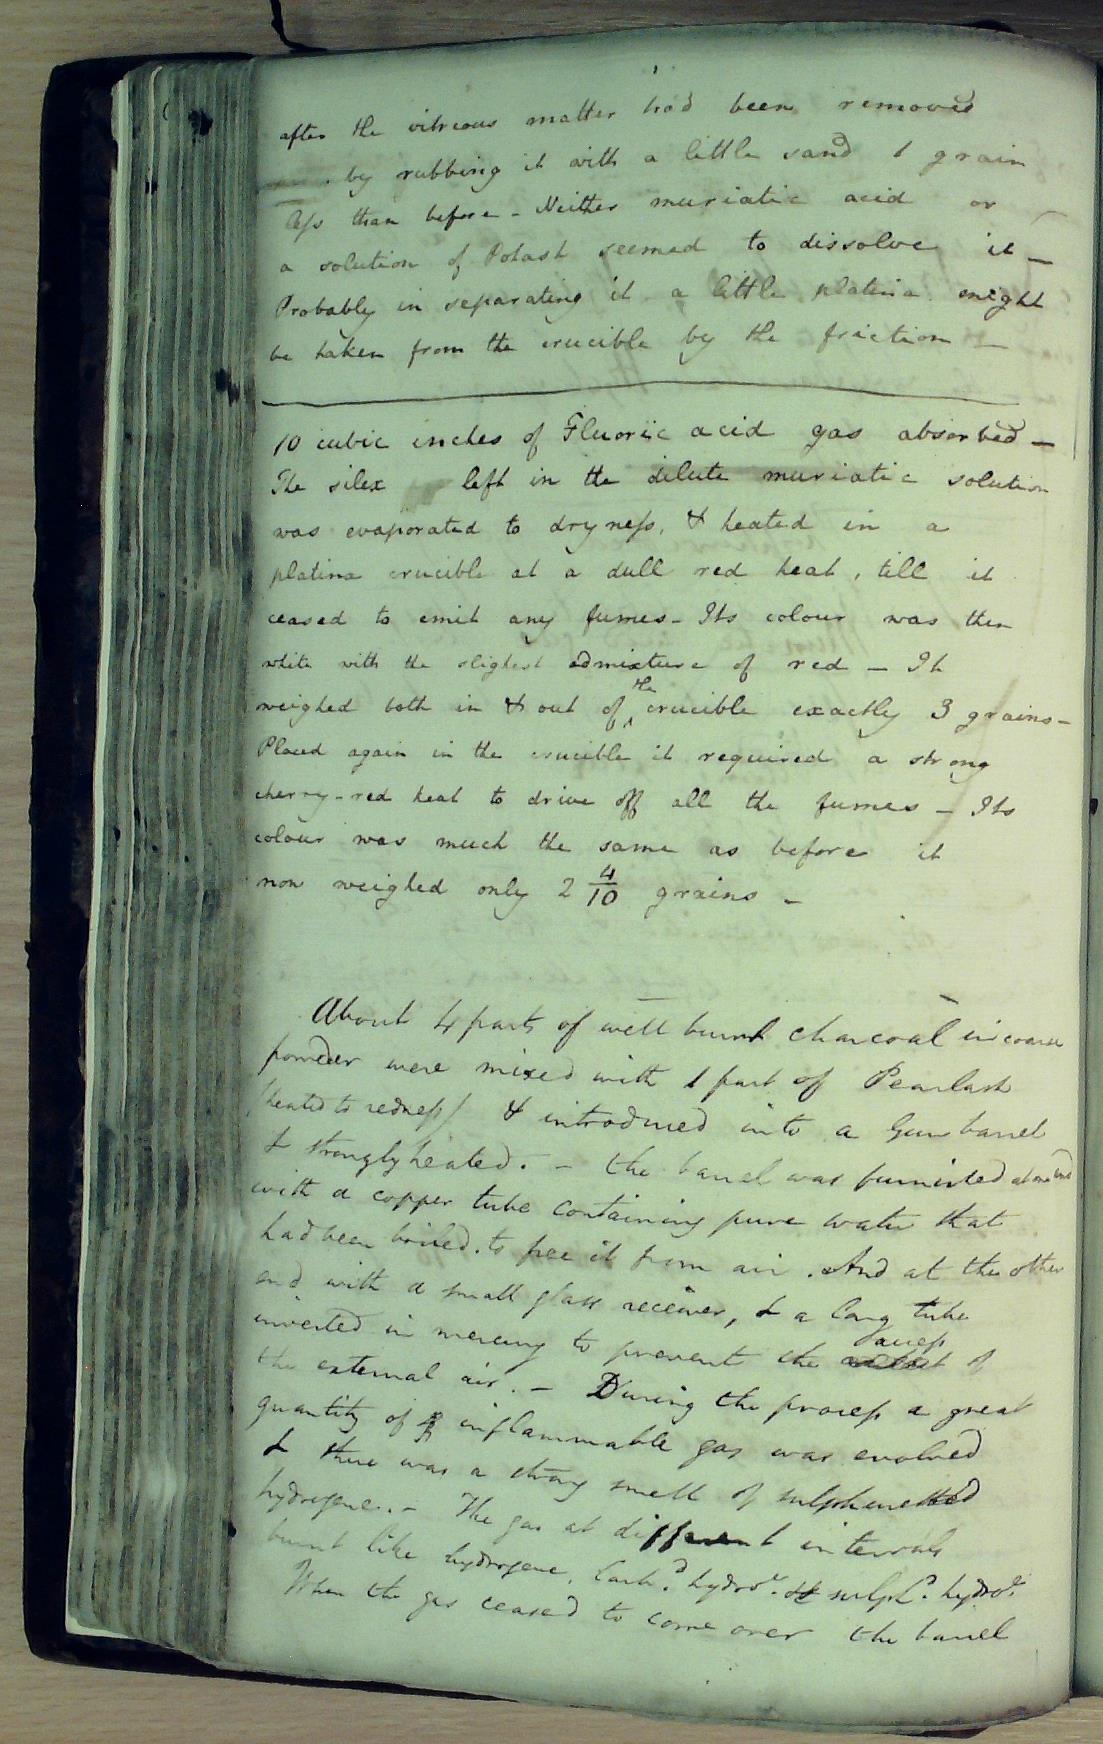 after the vitreous matter had been removed
by rubbing it with a little sand 1 grain
less than before - Neither muriatic acid or
a solution of Potash seemed to dissolve it -
Probably in separating it a little platina might
be taken from the crucible by the friction -
10 cubic inches of Fluoric acid gas absorbed -
The silex left in the dilute muriatic solution
was evaporated to dryness, & heated in a
platina crucible at a dull red heat, till it
ceased to emit any fumes - Its colour was then
white with the slighest admixture of red - It
weighed both in & out of the crucible exactly 3 grains -
Placed again in the crucible it required a strong
cherry-red heat to drive off all the fumes - Its
colour was much the same as before it
now weighed only 2 4/10 grains -
About 4 parts of well burnt charcoal in coarse
powder were mixed with 1 part of Pearlash
(heated to redness) & introduced into a Gun barrel
& strongly heated. - the barrel was furnished at one end
with a copper tube containing pure water that
had been boiled to free it from air. And at the other
end with a small glass receiver, & a long tube
inverted in mercury to prevent the access of
the external air. - During the process a great
quantity of inflammable gas was evolved
& there was a strong smell of sulphuretted
hydrogene. - The gas at different intervals
burnt like hydrogene, Carb.d hydro.e & sulph.d hydro.e
When the gas ceased to come over the barrel